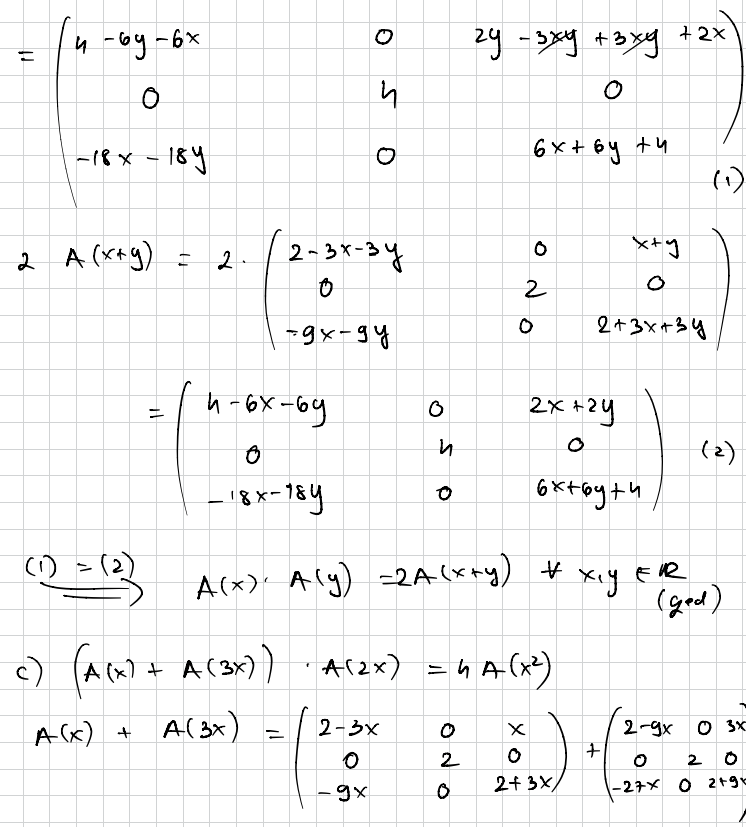 = ( 4 - 6y - 6x   0   2y - 3xy + 3xy + 2x )
0   4   0
-18x - 18y   0   6x + 6y + 4
(1)
2 A(x+y) = 2 · ( 2-3x-3y   0   x+y )
0   2   0
-9x-9y   0   2+3x+3y
= ( 4-6x-6y   0   2x+2y )
0   4   0   (2)
-18x-18y   0   6x+6y+4
(1) = (2) ⟹ A(x) · A(y) = 2A(x+y) ∀ x,y ∈ ℝ
(qed)
c) (A(x) + A(3x)) · A(2x) = 4 A(x²)
A(x) + A(3x) = ( 2-3x   0   x ) + ( 2-9x   0   3x
0   2   0   0   2   0
-9x   0   2+3x   -27x   0   2+9x